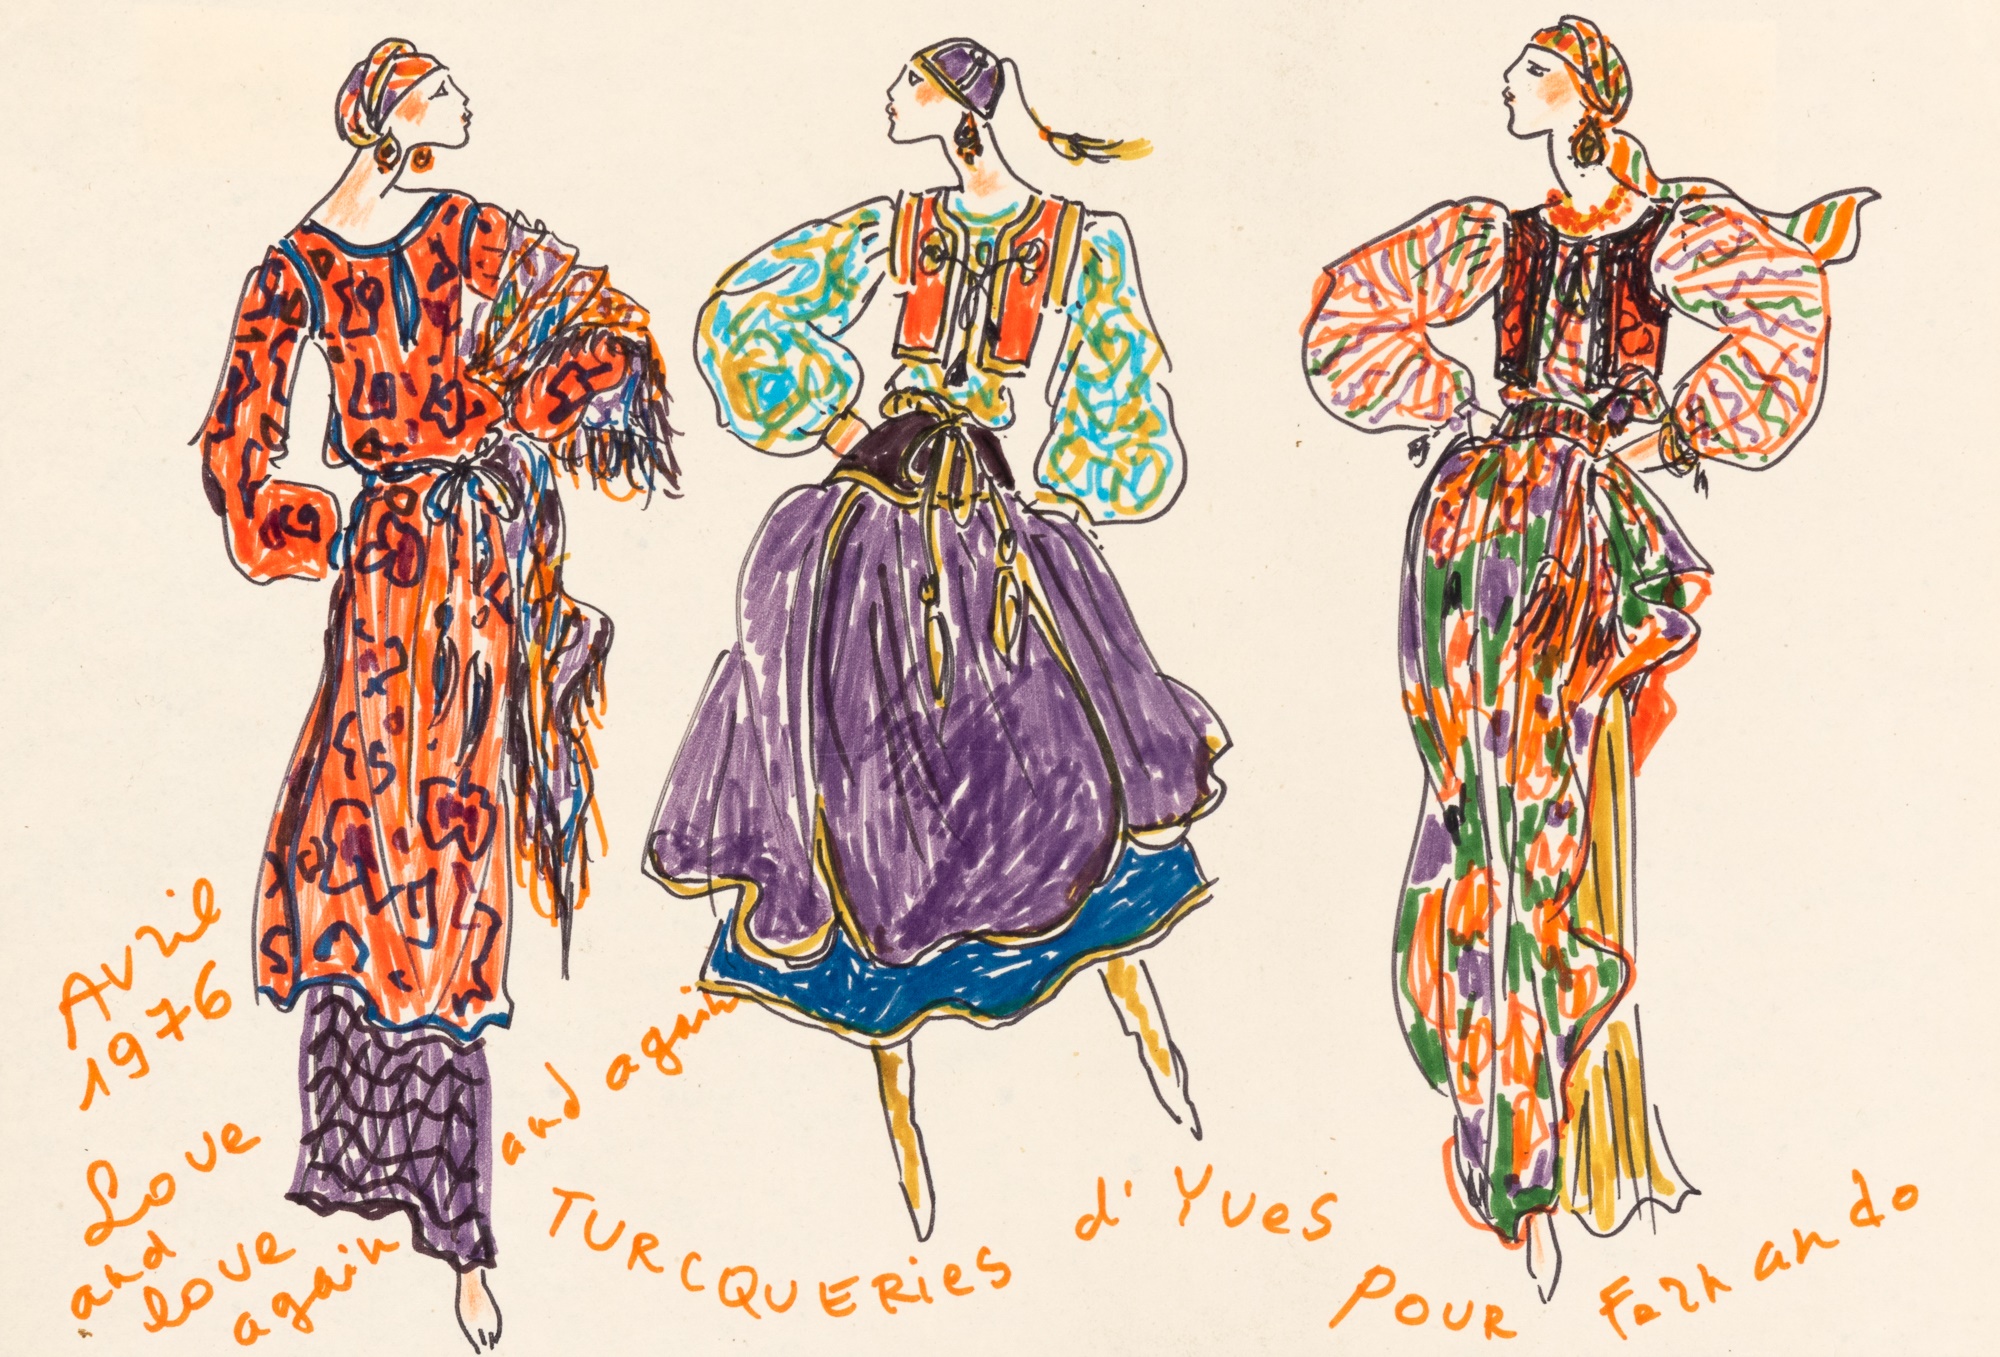 Avril
1976
Love
and
love
again
and again
TURCQUERieS
d'YVes
POUR Fernando